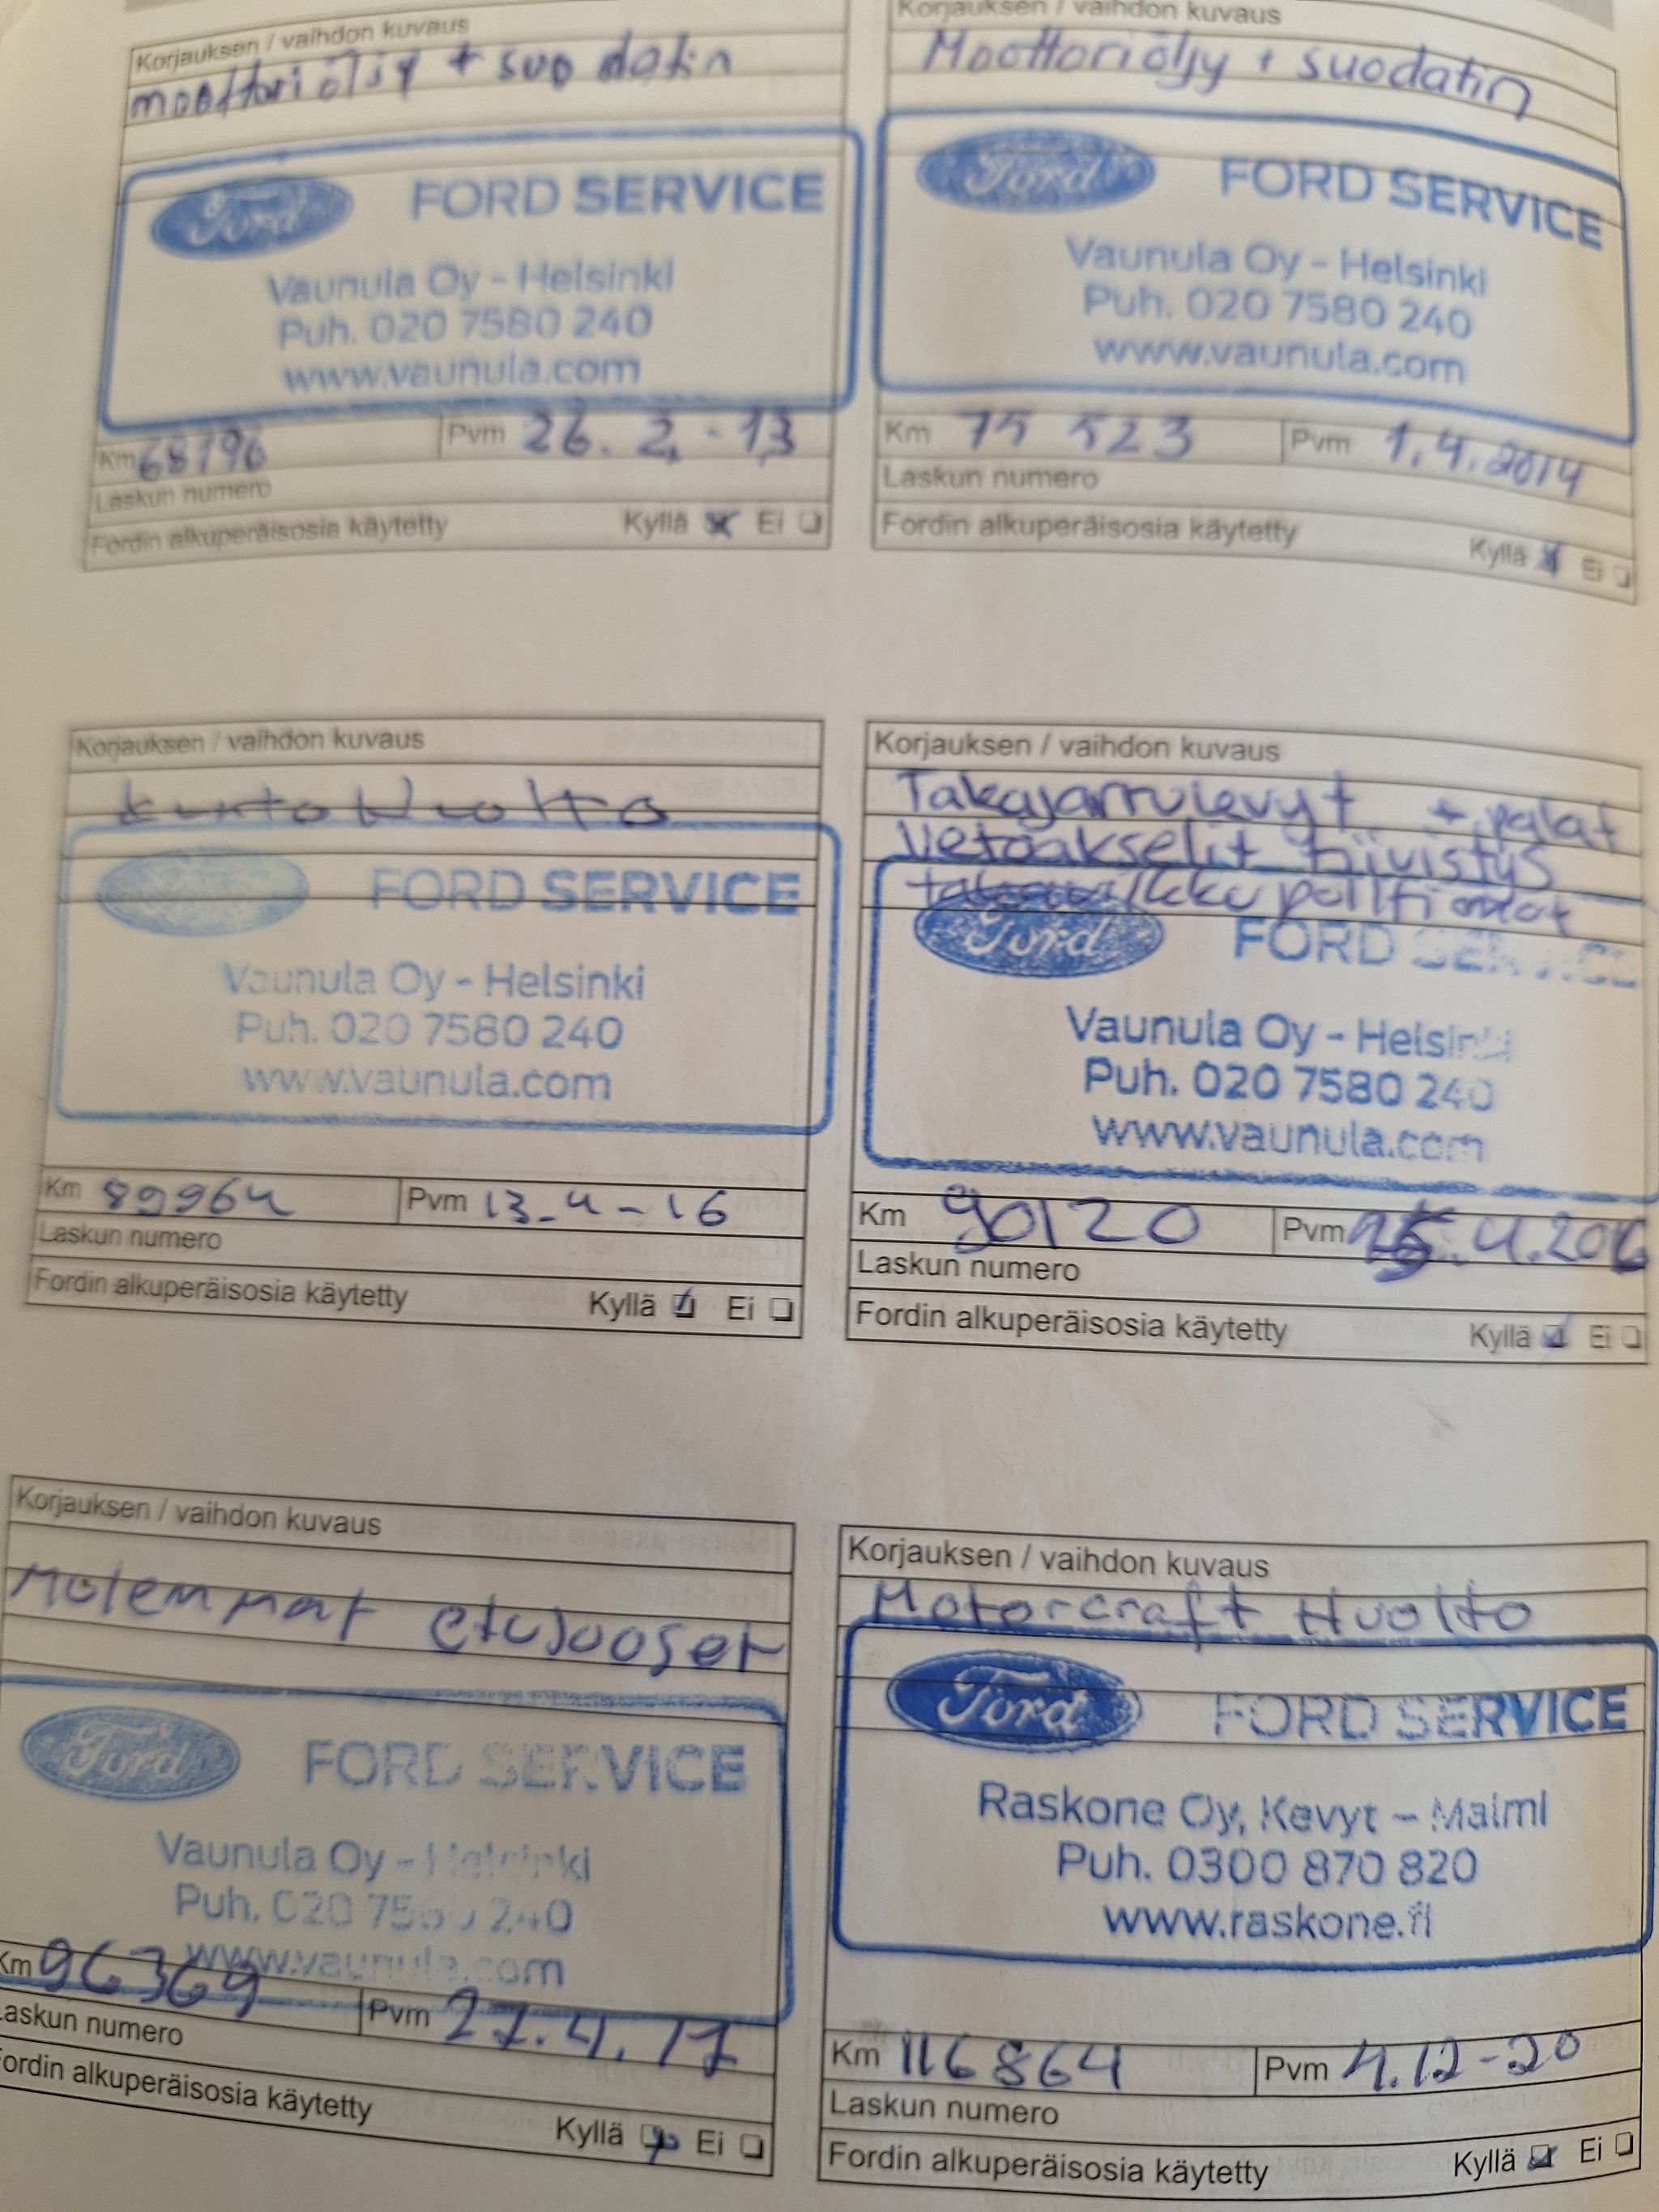 Korjauksen / vaihdon kuvaus
moottoriöljy + suodatin
Ford FORD SERVICE
Vaunula Oy - Helsinki
Puh. 020 7580 240
www.vaunula.com
Km 68196 Pvm 26. 2. -13
Laskun numero
Fordin alkuperäisosia käytetty Kyllä Ei
Korjauksen / vaihdon kuvaus
Moottoriöljy + suodatin
Ford FORD SERVICE
Vaunula Oy - Helsinki
Puh. 020 7580 240
www.vaunula.com
Km 75 523 Pvm 1.4.2014
Laskun numero
Fordin alkuperäisosia käytetty Kyllä Ei
Korjauksen / vaihdon kuvaus
kuntoHuolto
FORD SERVICE
Vaunula Oy - Helsinki
Puh. 020 7580 240
www.vaunula.com
Km 89964 Pvm 13-4-16
Laskun numero
Fordin alkuperäisosia käytetty Kyllä Ei
Korjauksen / vaihdon kuvaus
Takajarrulevyt + palat
Vetoakselit tiivistys
Ford FORD SERVICE
Vaunula Oy - Helsinki
Puh. 020 7580 240
www.vaunula.com
Km 90120 Pvm 4.2016
Laskun numero
Fordin alkuperäisosia käytetty Kyllä Ei
Korjauksen / vaihdon kuvaus
Molemmat etujouset
Ford FORD SERVICE
Vaunula Oy - Helsinki
Puh. 020 7580 240
www.vaunula.com
Km 96369 Pvm 27.4.17
Laskun numero
Fordin alkuperäisosia käytetty Kyllä Ei
Korjauksen / vaihdon kuvaus
Motorcraft Huolto
Ford FORD SERVICE
Raskone Oy, Kevyt - Malmi
Puh. 0300 870 820
www.raskone.fi
Km 116864 Pvm 4.12-20
Laskun numero
Fordin alkuperäisosia käytetty Kyllä Ei